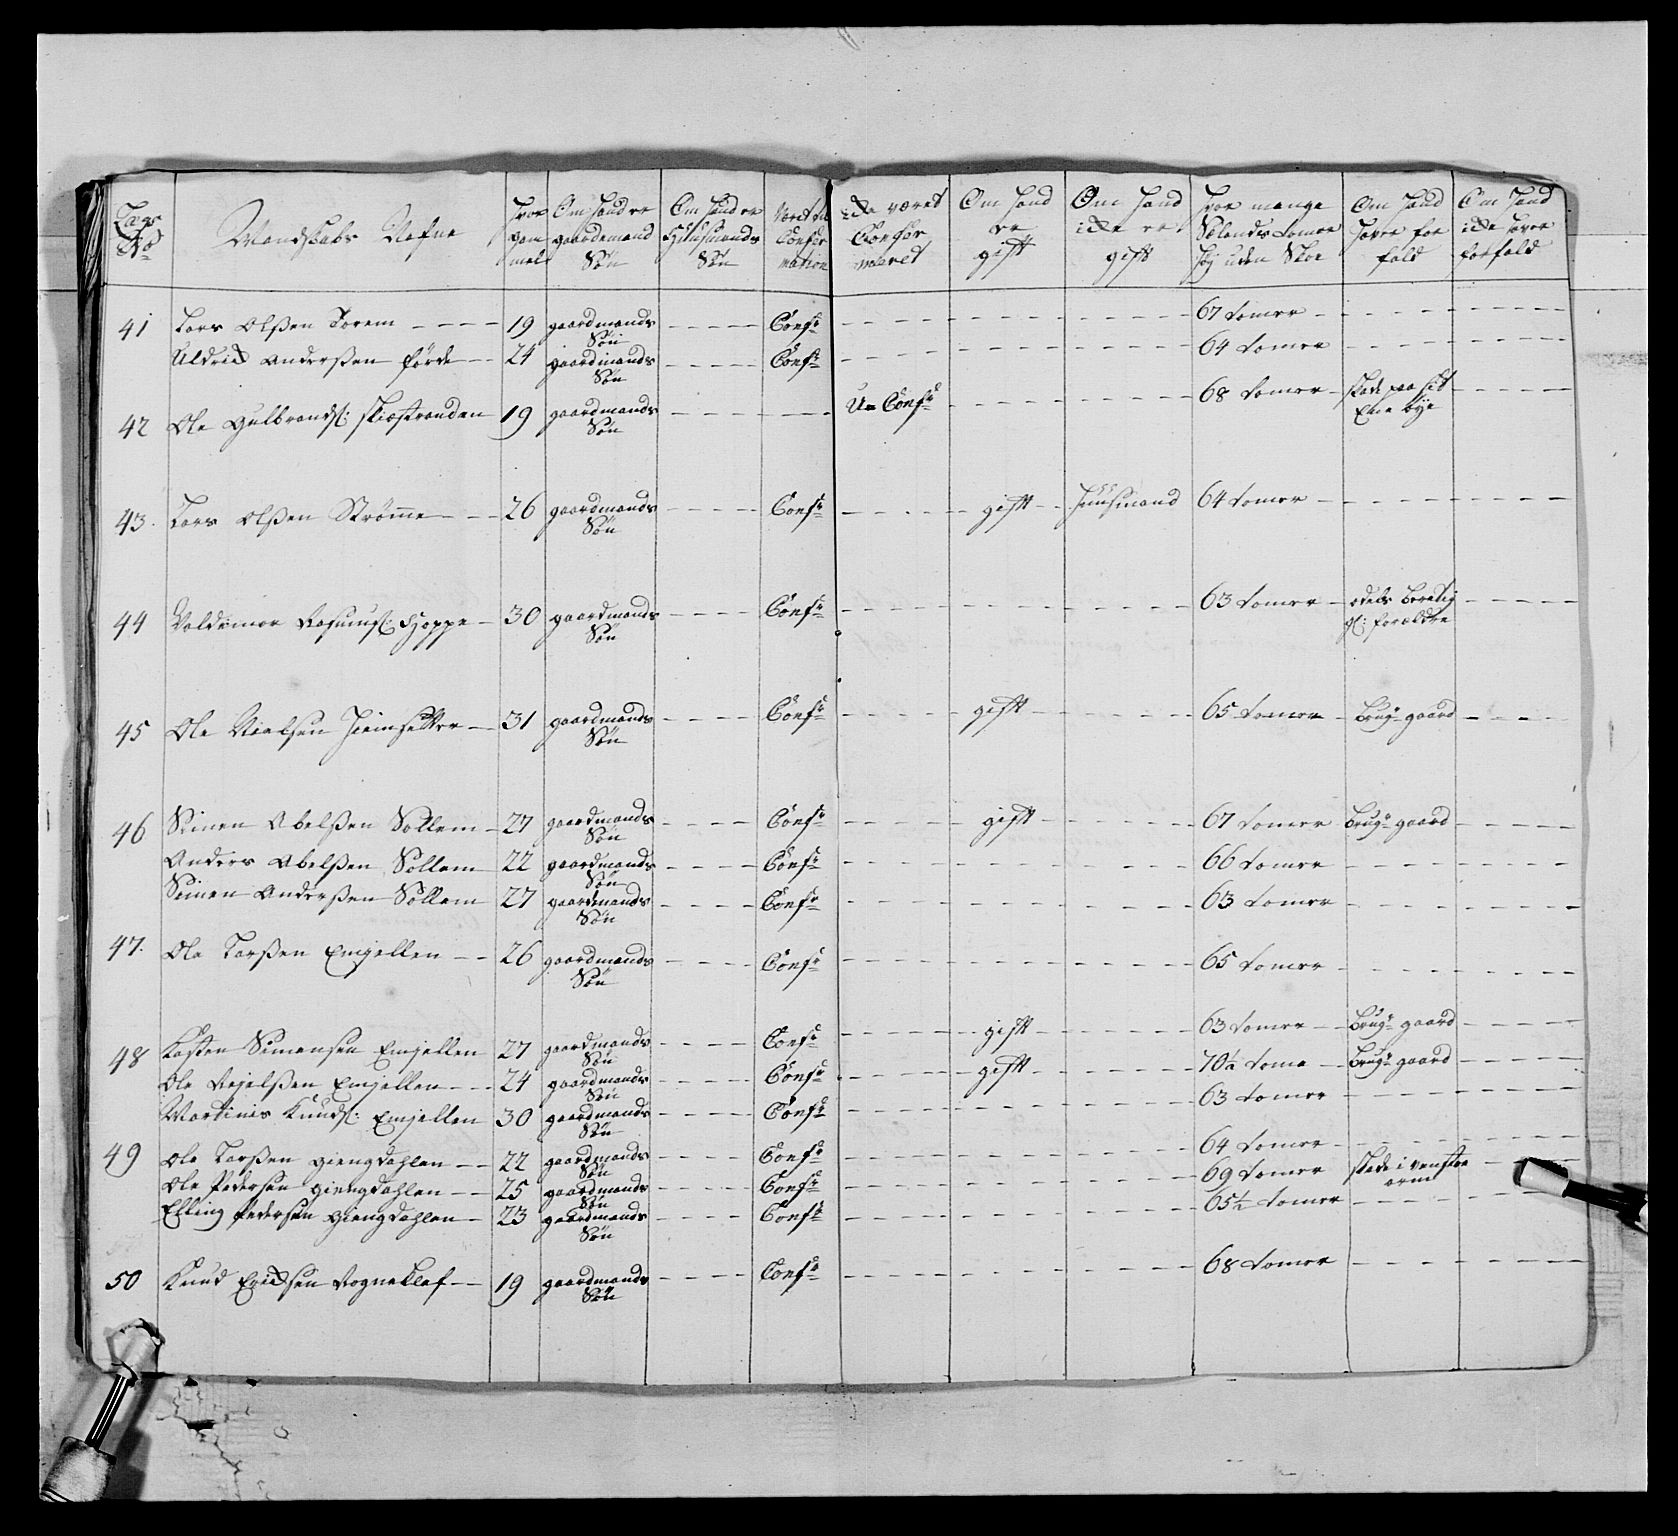 Lægs No Mandskabs Nafne Hvor gam mel Om hand er gaardemand Søn Om hand er Huusmands Søn Været til Confir mation icke været Confir meeret Om hand er gift Om hand icke er gift Hvor mange Sølands tomer høy uden Skoe Om hand haver for fald Om hand icke haver forfald
41 Lars Olßen Torem 19 gaardmands Søn Confr 67 tomer
Uldrick Anderßen Førde 24 gaardmands Søn Confr 64 tomer
42 Ole Gulbrands: 19 gaardmands Søn U= Confr 68 tomer skade paa sit Ene øye
43. Lars Olßen Strømme 26 gaardmands Søn Confr gift huusmand 64 tomer
44 Valdemar Rasmus: Hoppe 30 gaardmands Søn Confr 63 tomer odels beretig gl: forældre
45 Ole Nielsen 31 gaardmands Søn Confr gift 65 tomer Brugr gaard
46 Simen Abelßen Sollem 27 gaardmands Søn Confr gift 67 tomer Brugr gaard
Anders Abelßen Sollem 22 gaardmands Søn Confr 66 tomer
Simen Anderßen Søllem 27 gaardmands Søn Confr 63 tomer
47. Ole Larßen Emjellen 26 gaardmands Søn Confr 65 tomer
48 Kasten Simensen Emjellen 27 gaardmands Søn Confr gift 63 tomer Brugr gaard
Ole Emjellen 24 gaardmands Søn Confr gift 70½ tome Brugr gaard
Martinis Knuds: Emjellen 30 gaardmands Søn Confr 63 tomer
49 Ole Larßen Giengdahlen 22 gaardmands Søn Confr 64 tomer
Ole Pedersen Giengdahlen 25 gaardmands Søn Confr 69 tomer skade i venster arm
Elling Pedersen Giengdahlen 23 gaardmands Søn Confr 65½ tomer
50 Knud Ericksen Rogneklef 19 gaardmands Søn Confr 68 tomer